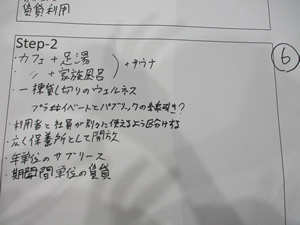 賃貸利用
Step-2
・カフェ + 足湯
・ 〃 + 家族風呂
+サウナ
・一棟貸し切りのウェルネス
プライベートとパブリックの
・利用者と社員が別々に使えるよう区分けする
・広く保養所として開放
・年単位のサブリース
・期間単位の賃貸
⑥